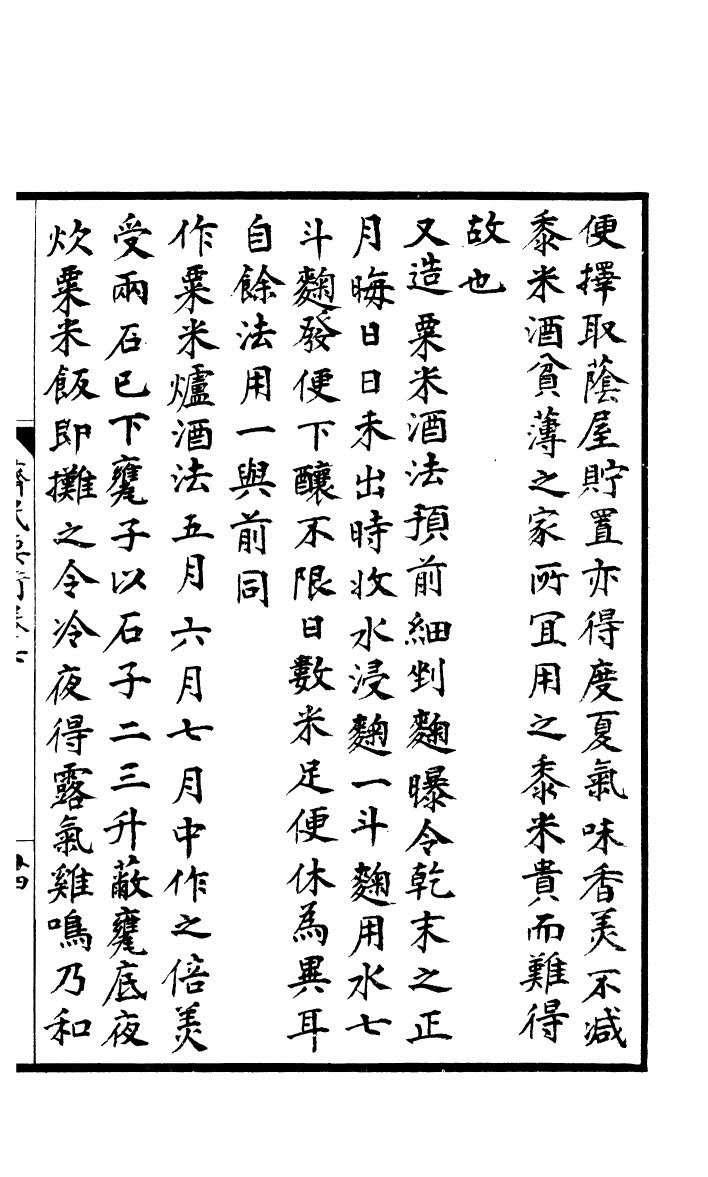 便擇取蔭屋貯置亦得度夏氣味香美不減
黍米酒貧薄之家所宜用之黍米貴而難得
故也
又造粟米酒法預前細剉麴曝令乾末之正
月晦日日未出時收水浸麴一斗麴用水七
斗麴發便下釀不限日數米足便休為異耳
自餘法用一與前同
作粟米爐酒法五月六月七月中作之倍美
受兩石已下甕子以石子二三升蔽甕底夜
炊粟米飯即攤之令冷夜得露氣雞鳴乃和